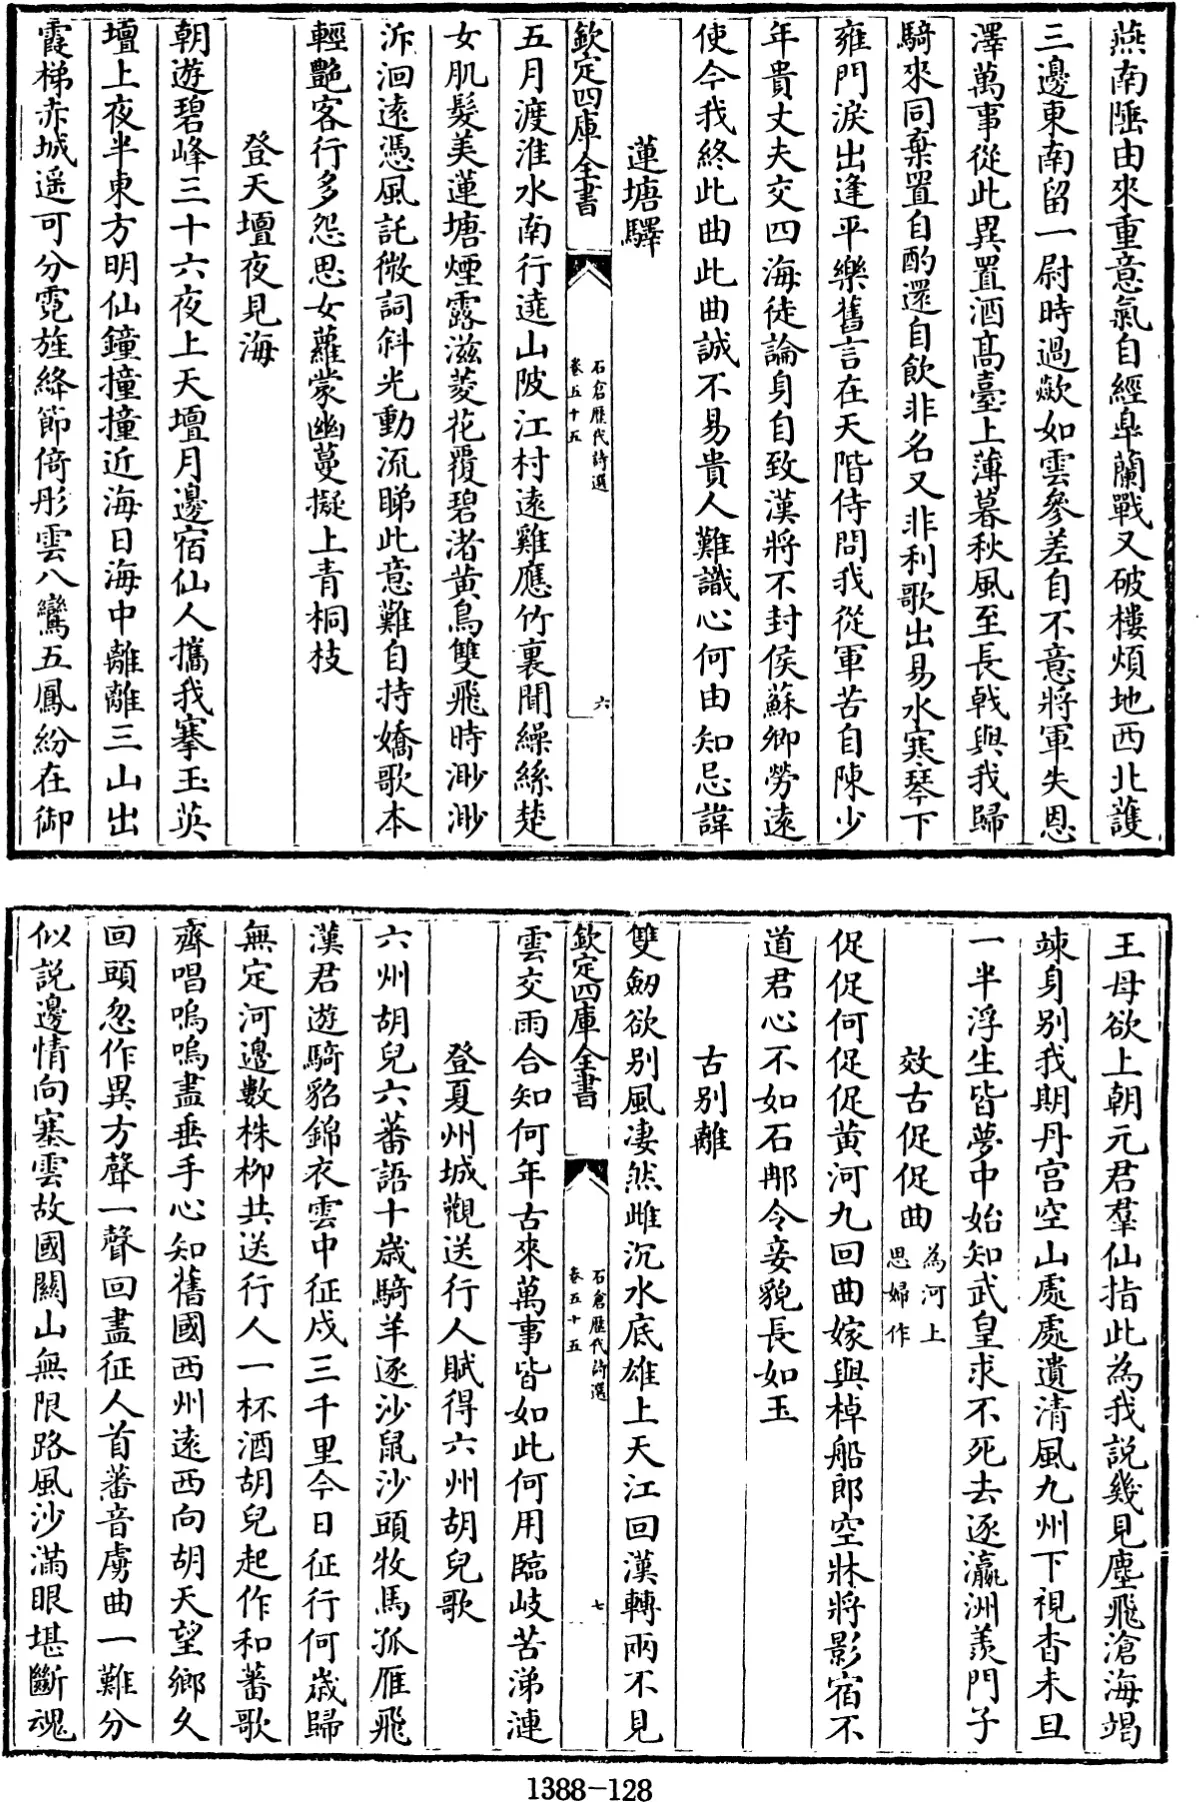 燕南陲由來重意氣自經臯蘭戰又破樓煩地西北護
三邊東南留一尉時過歘如雲參差自不意將軍失恩
澤萬事從此異置酒髙臺上薄暮秋風至長㦸與我歸
騎來同棄置自酌還自飲非名又非利歌出易水寒琴下
雍門淚出逢平樂舊言在天階侍問我從軍苦自陳少
年貴丈夫交四海徒論身自致漢將不封侯蘇卿勞遠
使今我終此曲此曲誠不易貴人難識心何由知忌諱
蓮塘驛
欽定四庫全書
石倉歷代詩選
卷五十五
六
五月渡淮水南行遶山陂江村逺雞應竹裏聞繰絲楚
女肌髮美蓮塘煙露滋菱花覆碧渚黄鳥雙飛時渺渺
泝洄逺憑風託微詞斜光動流睇此意難自持嬌歌本
輕艶客行多怨思女蘿蒙幽蔓擬上青桐枝
登天壇夜見海
朝遊碧峰三十六夜上天壇月邊宿仙人攜我搴玉英
壇上夜半東方明仙鐘撞撞近海日海中離離三山出
霞梯赤城遥可分霓旌絳節倚彤雲八鸞五鳳紛在御
王母欲上朝元君羣仙指此為我説幾見塵飛滄海竭
竦身别我期丹宫空山處處遺清風九州下視杳未旦
一半浮生皆夢中始知武皇求不死去逐瀛洲羡門子
效古促促曲為河上思婦作
促促何促促黄河九回曲嫁與棹船郎空牀將影宿不
道君心不如石那令妾貌長如玉
古别離
雙劒欲别風凄然雌沉水底雄上天江回漢轉兩不見
欽定四庫全書
石倉歷代詩選
卷五十五
七
雲交雨合知何年古來萬事皆如此何用臨岐苦涕漣
登夏州城觀送行人賦得六州胡兒歌
六州胡兒六蕃語十歳騎羊逐沙鼠沙頭牧馬孤雁飛
漢君遊騎貂錦衣雲中征戍三千里今日征行何歳歸
無定河邉數株柳共送行人一杯酒胡兒起作和蕃歌
齊唱嗚嗚盡垂手心知舊國西州逺西向胡天望鄉久
回頭忽作異方聲一聲回盡征人首蕃音虜曲一難分
似説邊情向塞雲故國關山無限路風沙滿眼堪斷魂
1388-128